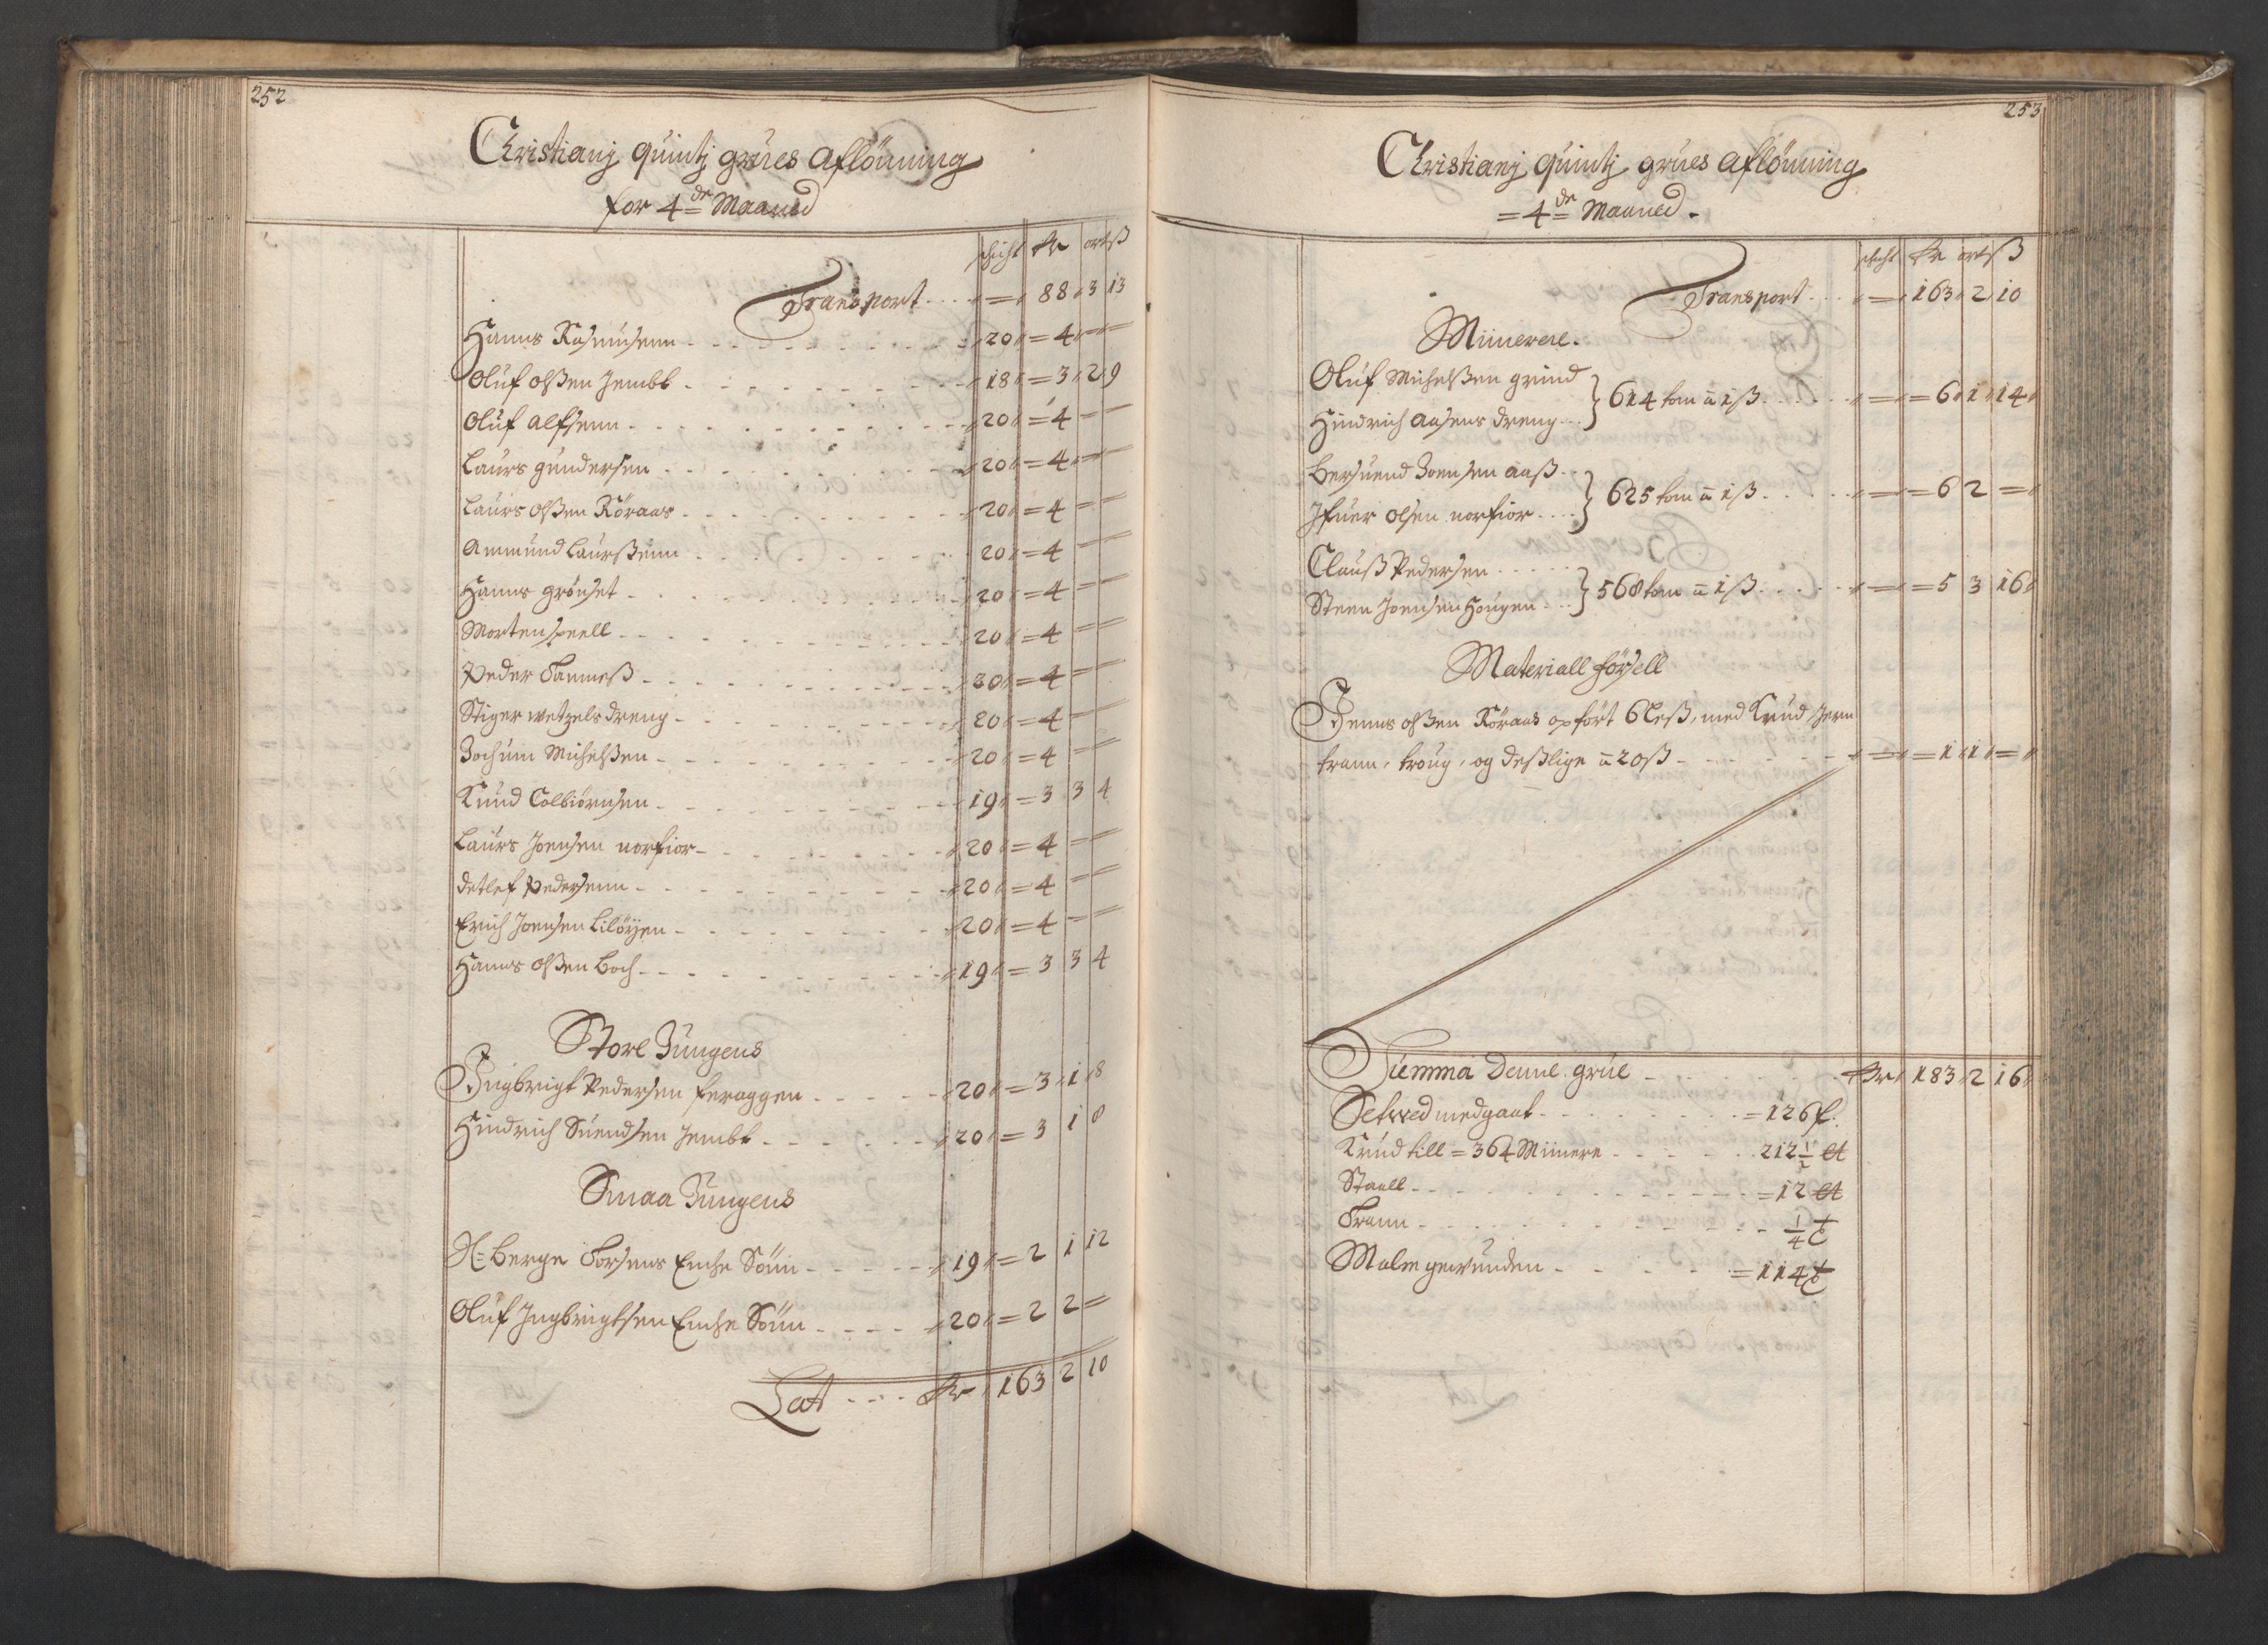 252
Christianj quintj grues aflönning
for 4de Maaned
schicht Rr ort ß
Transport - - - = 88 3 13
Hanns Rasmusenn - - - 20 = 4 = =
Oluf olßen Jembt - - - 18 = 3 2 9
Oluf alfsenn - - - 20 = 4 = =
Laurs gundersen - - - 20 = 4 = =
Laurs olßen Röraas - - - 20 = 4 = =
Ammund Laurßenn - - - 20 = 4 = =
Hanns grönset - - - 20 = 4 = =
Morten speell - - - 20 = 4 = =
Peder Tamneß - - - 20 = 4 = =
Stiger wetzels dreng - - - 20 = 4 = =
Jochum Michelßen - - - 20 = 4 = =
Knud Colbiörnsen - - - 19 = 3 3 4
Laurs Joensen norfior - - - 20 = 4 = =
detlef Pedersenn - - - 20 = 4 = =
Erich Joensen Liløyen - - - 20 = 4 = =
Hanns olßen Boch - - - 19 = 3 3 4
Store Jungens
Ingbrigt Pedersen feraggen - - - 20 = 3 1 8
Hindrich Suendsen Jembt - - - 20 = 3 1 8
Smaa Jungens
H: Berge Torsens Enche Sönn - - - 19 = 2 1 12
Oluf Ingbrigtsen Enche Sönn - - - 20 = 2 2 =
Lat - - - Rr 163 2 10
253
Christianj quintj grues aflönning
= 4de Maaned -
schicht Rr ort ß
Transport - - - = 163 2 10
Minerere.
Oluf Michelßen grind
Hindrich Aasens dreng } 614 tom a 1 ß - - - = = 6 1 14
Bersuend Joensen aaß
Ifuer olsen norfior } 625 tom a 1 ß - - - = = 6 2 =
Clauß Pedersen
Steen Joensen Hougen } 568 tom a 1 ß - - - = = 5 3 16
Materiall försell
Jenns olßen Röraas opfört 6 Leß, med Krud Jern
trann, troug, og deßlige a 20 ß - - - = = 1 1 =
Summa Denne grue - - - Rr 183 2 16
Setwed medgaat - - - = 126 f.
Krud till = 364 Minere - - - 212 1/2 ℔
Staall - - - = 12 ℔
Trann - - - 1/4 t
Malm gewunden - - - = 114 t